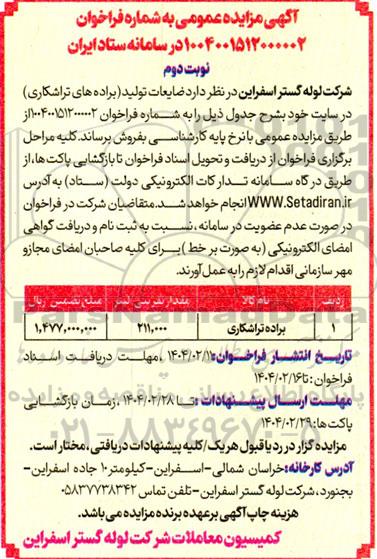 آگهی مزایده عمومی به شماره فراخوان
۱۰۰۴۰۰۱۵۱۲۰۰۰۰۰۲ در سامانه ستاد ایران
نوبت دوم
شرکت لوله گستر اسفراین در نظر دارد ضایعات تولید (براده های تراشکاری)
در سایت خود بشرح جدول ذیل را به شماره فراخوان ۱۰۰۴۰۰۱۵۱۲۰۰۰۰۰۲ از
طریق مزایده عمومی با نرخ پایه کارشناسی بفروش برساند. کلیه مراحل
برگزاری فراخوان از دریافت و تحویل اسناد فراخوان تا بازگشایی پاکت ها، از
طریق در گاه سامانه تدارکات الکترونیکی دولت (ستاد) به آدرس
WWW.Setadiran.ir انجام خواهد شد. متقاضیان شرکت در فراخوان
در صورت عدم عضویت در سامانه، نسبت به ثبت نام و دریافت گواهی
امضای الکترونیکی (به صورت بر خط) برای کلیه صاحبان امضای مجاز و
مهر سازمانی اقدام لازم را به عمل آورند.
ردیف نام کالا مقدار تقریبی مبلغ تضمین ریال
۱ براده تراشکاری ۲۱۱,۰۰۰ ۱,۴۷۷,۰۰۰,۰۰۰
تاریخ انتشار فراخوان: ۱۴۰۴/۰۲/۱۱، مهلت دریافت اسناد
فراخوان: تا ۱۴۰۴/۰۲/۱۶
مهلت ارسال پیشنهادات: تا ۱۴۰۴/۰۲/۲۸، زمان بازگشایی
پاکت ها: ۱۴۰۴/۰۲/۲۹
مزایده گزار در رد یا قبول هر یک/کلیه پیشنهادات دریافتی، مختار است.
آدرس کارخانه: خراسان شمالی-اسفراین-کیلومتر ۱۰ جاده اسفراین-
بجنورد، شرکت لوله گستر اسفراین-تلفن تماس ۰۵۸۳۷۷۳۸۳۴۲
هزینه چاپ آگهی بر عهده برنده مزایده می باشد.
کمیسیون معاملات شرکت لوله گستر اسفراین